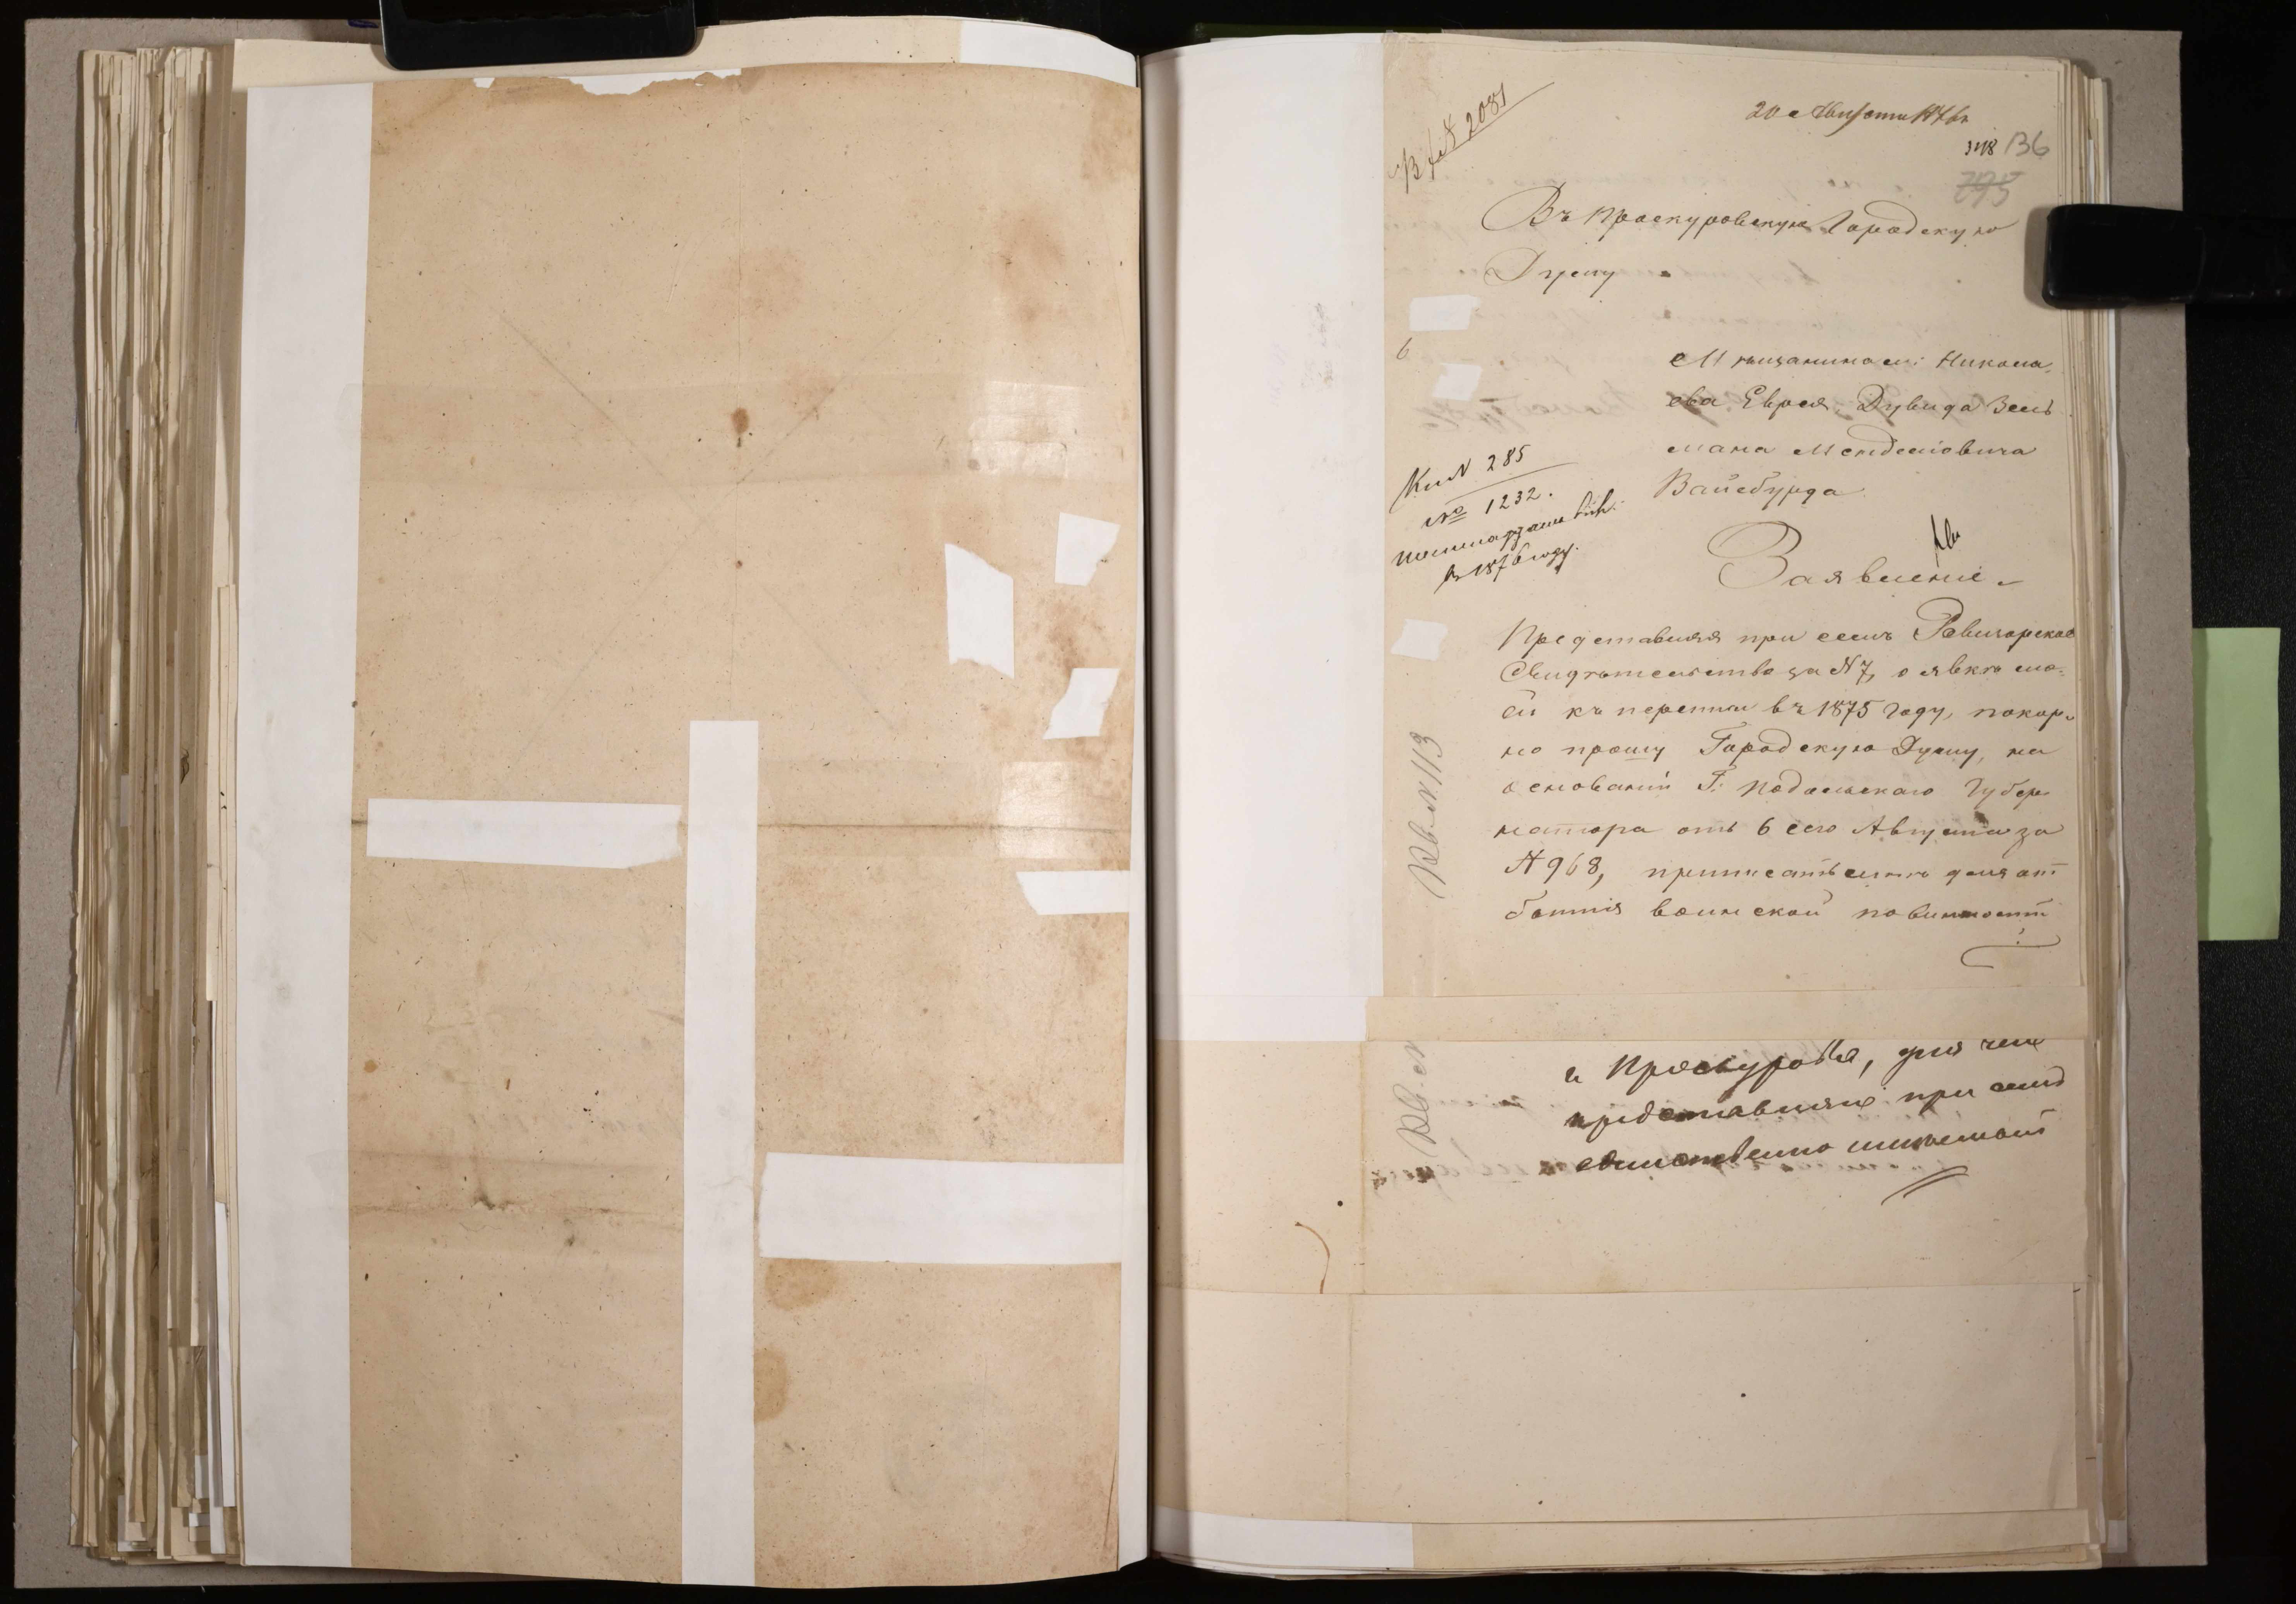 20 Августа 1876
В. № 2081
348 136
795
Въ Проскуровскую Городскую
Думу
6
Мѣщанина м: Никола-
ева Еврея, Дувида Зель
мана Менделіовича
Вайсбурда
Кн N 285
№ 1232.
в 1876 году.
Заявленіе
Представляя при семъ Раввинское
Свидѣтельство за № 7, о явкѣ мо-
ей къ переписи въ 1875 году, покор-
но прошу Городскую Думу, на
основаніи Г. Подольскаго Губер
натора отъ 6 сего Августа за
№ 968, приписать меня для от
бытія воинской повинности
Кв. N 113
г Проскурова, для чего
представляю при семъ
Кв. N